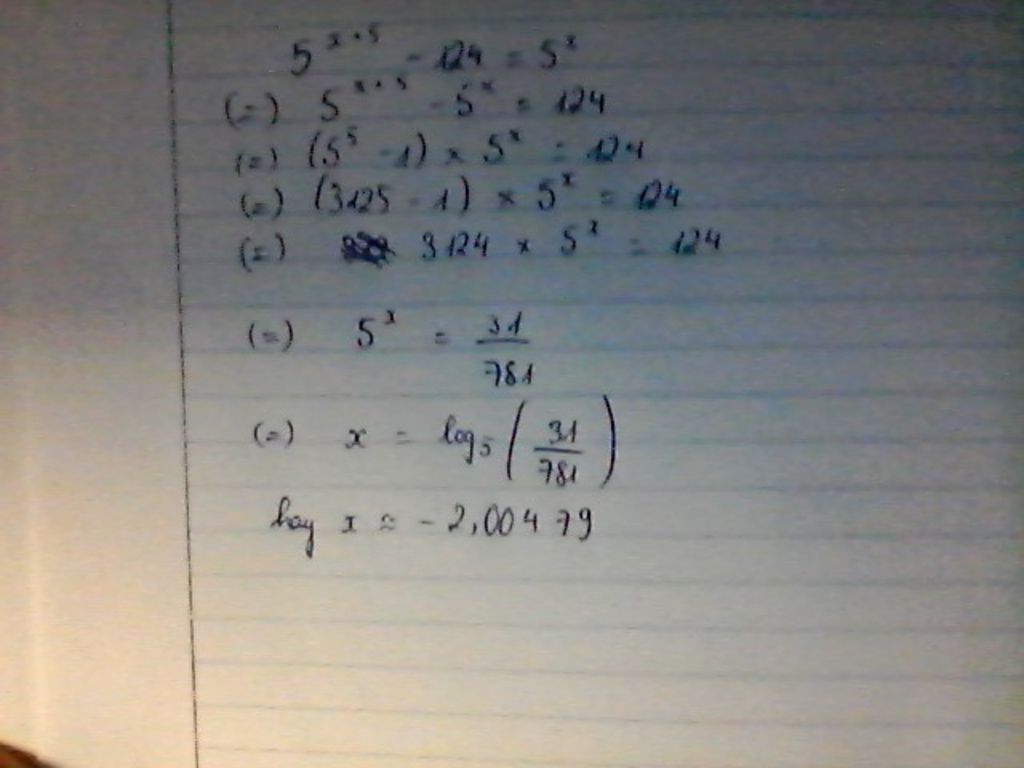 5^{x+5} - 124 = 5^x
(=) 5^{x+5} - 5^x = 124
(=) (5^5 - 1) × 5^x = 124
(=) (3125 - 1) × 5^x = 124
(=) 3124 × 5^x = 124
(=) 5^x = \frac{31}{781}
(=) x = log_5 (\frac{31}{781})
hay x ≈ -2,00479